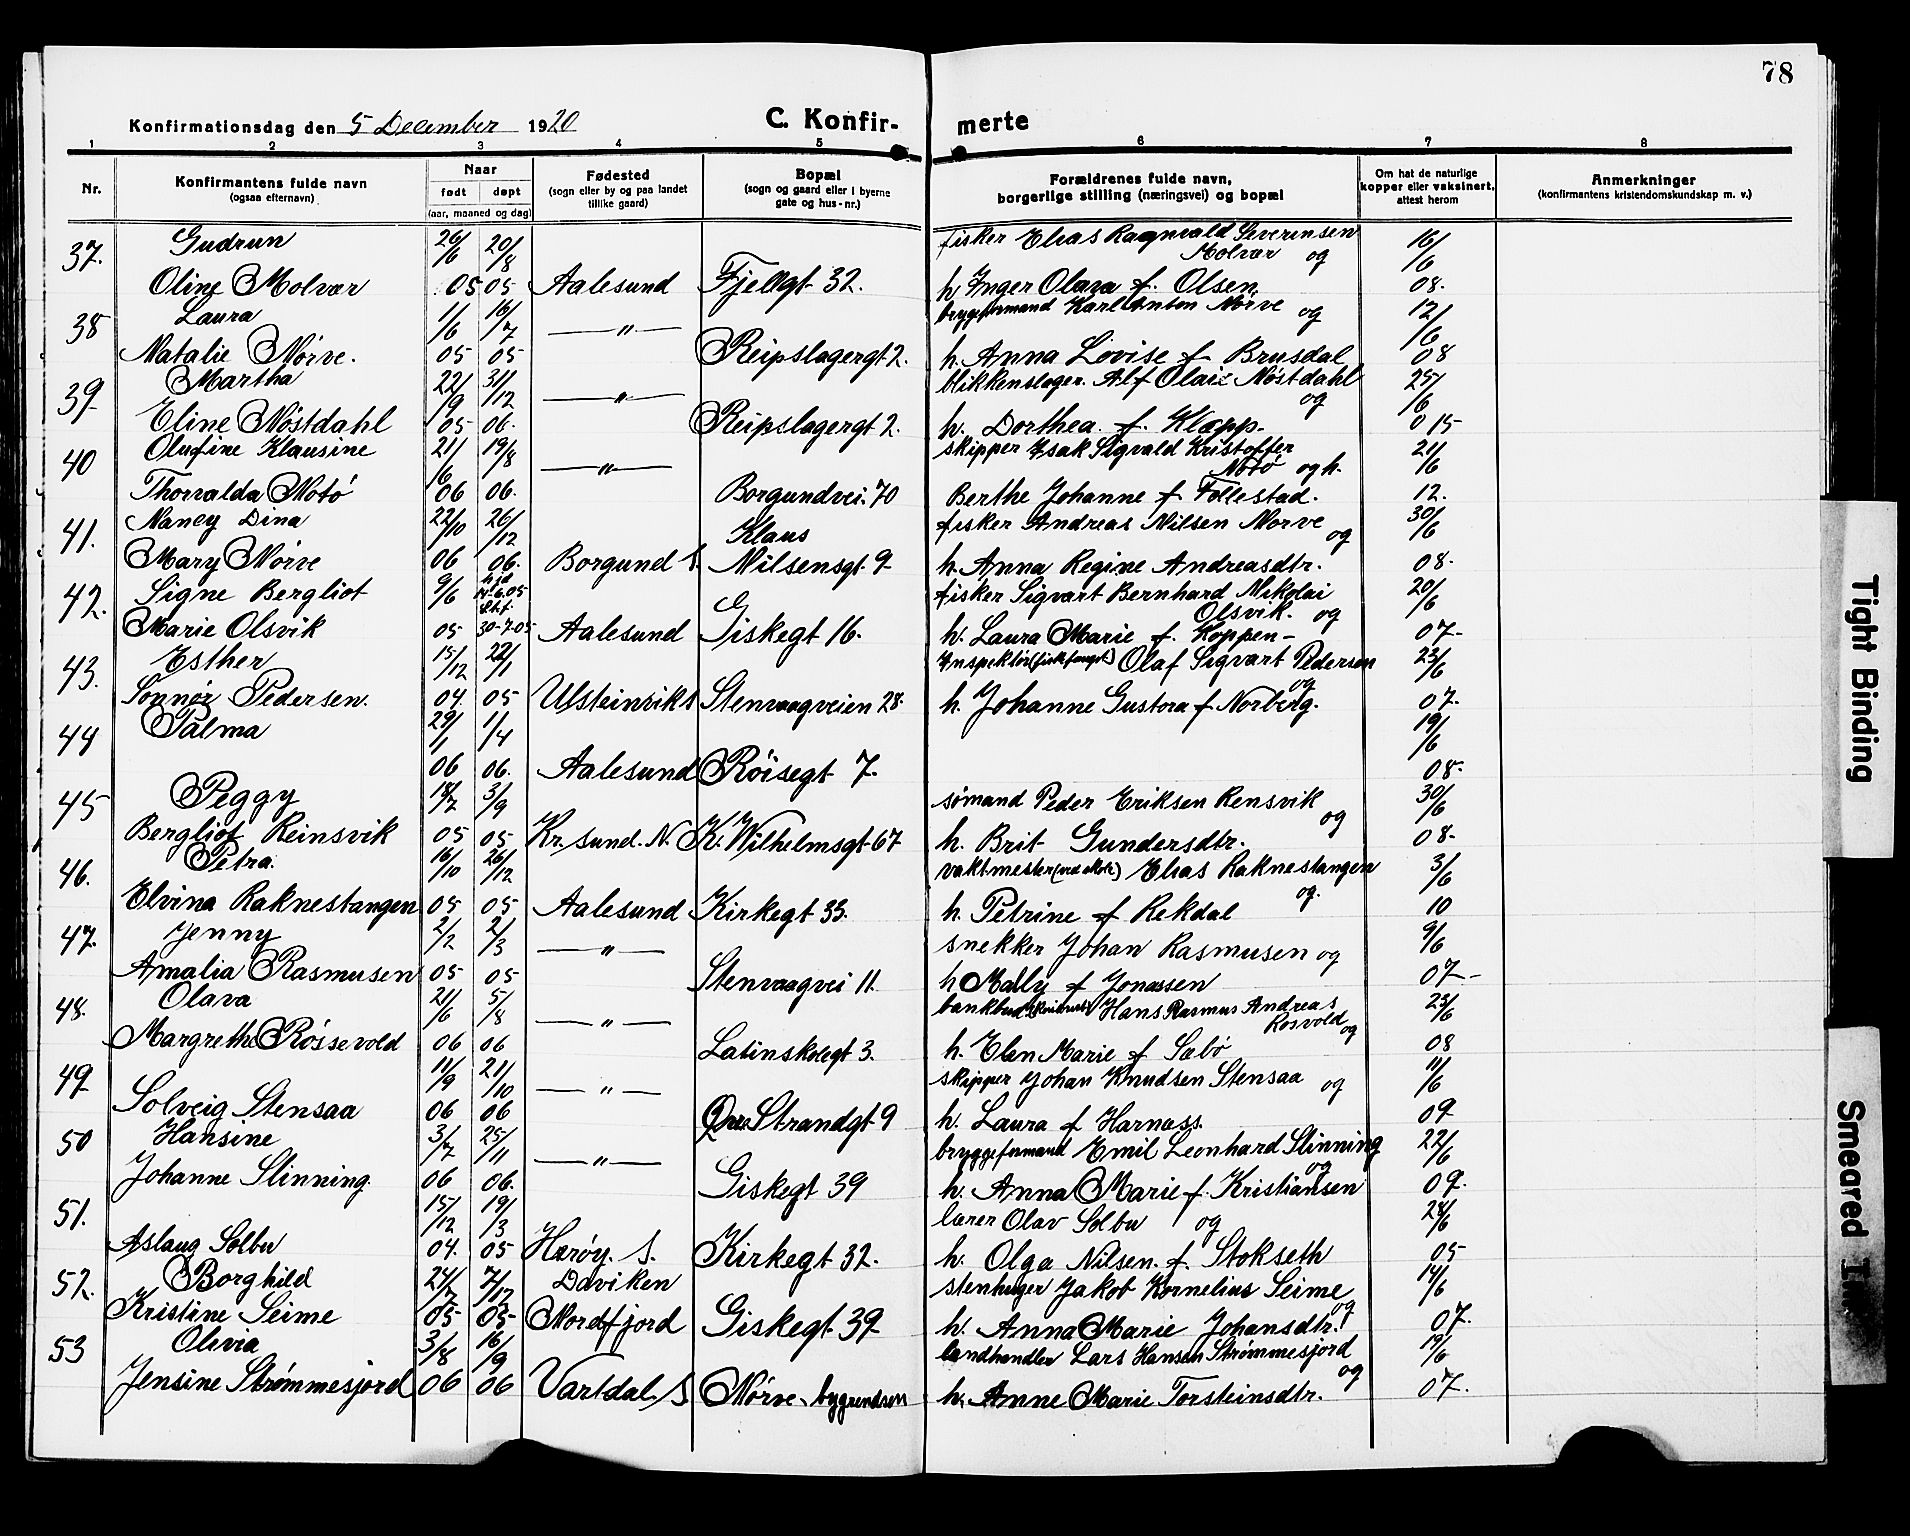 78
Konfirmationsdag den 5 December 1920
C. Konfir- merte
1 2 3 4 5 6 7 8
Nr.
Konfirmantens fulde navn
(ogsaa efternavn)
Naar
født døpt
(aar, maaned og dag)
Fødested
(sogn eller by og paa landet
tillike gaard)
Bopæl
(sogn og gaard eller i byerne
gate og hus-nr.)
Forældrenes fulde navn,
borgerlige stilling (næringsvei) og bopæl
Om hat de naturlige
kopper eller vaksinert,
attest herom
Anmerkninger
(konfirmantens kristendomskundskap m. v.)
37. Gudrun 26/6 20/8 fisker Elias Ragnvald Severinsen 16/6
Molvær og
Oline Molvær 05 05 Aalesund Fjellgt 32. h. Inger Olava f. Olsen. 08.
38 Laura 1/6 16/7 —"— bryggeformand Karl Anton Nørve og 12/6
Natalie Nørve. 05 05 Reipslagergt 2. h. Anna Lovise f Brusdal 08
39 Martha 22/9 31/12 —"— blikkenslager. Alf Olai Nøstdahl 25/6
og
Eline Nøstdahl 05 06. Reipslagergt 2. h. Dorthea. f. Klepp. 015
40 Olufine Klausine 21/6 19/8 —"— skipper Isak Sigvald Kristoffer 21/6
Notø og h.
Thorvalda Notø 06 06. Borgundvei. 70 Berthe Johanne f Follestad. 12.
41. Nancy Dina 22/10 26/12 Klaus fisker Andreas Nilsen Nørve og 30/6
Mary Nørve 06 06. Borgund S. Nilsensgt 9 h. Anna Regine Andreasdtr. 08.
42. Signe Bergliot 9/6 hjd 14.6.05 st.f. fisker Sigvart Bernhard Nikolai 20/6
Olsvik. og
Marie Olsvik 05 30-7-05 Aalesund Giskegt 16. h. Laura Marie f. Koppen 07
43. Esther 15/12 22/1 Inspektør (fiskfangst) Olaf Sigvart Pedersen 23/6
og
Sonnør Pedersen. 04. 05 Ulsteinvik S Stenvaagveien 28. h. Johanne Gustova f Norberg. 07.
44 Palma 29/1 1/4 19/6
06 06. Aalesund Røisegt 7. 08.
45 Peggy 18/7 3/9 sømand Peder Eriksen Rensvik og 30/6
Bergliot Reinsvik 05 05 Kr. sund. N. K. Wilhelmsgt 67 h. Brit Gundersdtr. 08.
46. Petra. 16/10 26/12 vaktmester Elias Raknestangen 3/6
og.
Elvina Raknestangen 05 05 Aalesund Kirkegt 33. h. Petrine f Rekdal 10
47. Jenny 2/2 2/3 —"— snekker Johan Rasmusen og 9/6
Amalia Rasmusen 05 05 Stenvaagvei 11. h Mally f Jonassen 07
48. Olava 21/6 5/8 —"— bankbud Hans Rasmus Andreas 23/6
Rosvold og
Margrethe Røssevold 06 06 Latinskolegt 3. h. Elen Marie f Sæbø 08
49 11/9 21/10 —"— skipper Johan Knudsen Stensaa og 11/6
Solveig Stensaa 06 06 Øvre Strandgt 9 h. Laura f Harnæss. 09
50 Hansine 3/7 25/11 —"— bryggeformand Emil Leonhard Slinning 22/6
og
Johanne Slinning 06 06. Giskegt 39 h. Anna Marie f. Kristiansen 09.
51. 15/12 19/3 lærer Olav Solbu og 28/6
Aslaug Solbu 04. 05 Herøy. S. Kirkegt 32. h. Olga Nilsen. f. Stokseth 05
52. Borghild 24/7 7/12 Daviken stenhuger Jakob Kornelius Seime 14/6
og
Kristine Seime 05 05 Nordfjord Giskegt 39 h. Anna Marie Johansdtr. 07.
53 Olivia 3/8 16/9 landhandler Lars Hansen Strømmesjord 19/6
og
Jensine Strømmesjord 06 06 Vartdal S Nørve. bygrendsen h. Anne Marie Torsteinsdtr. 07.
Tight Binding
Smeared